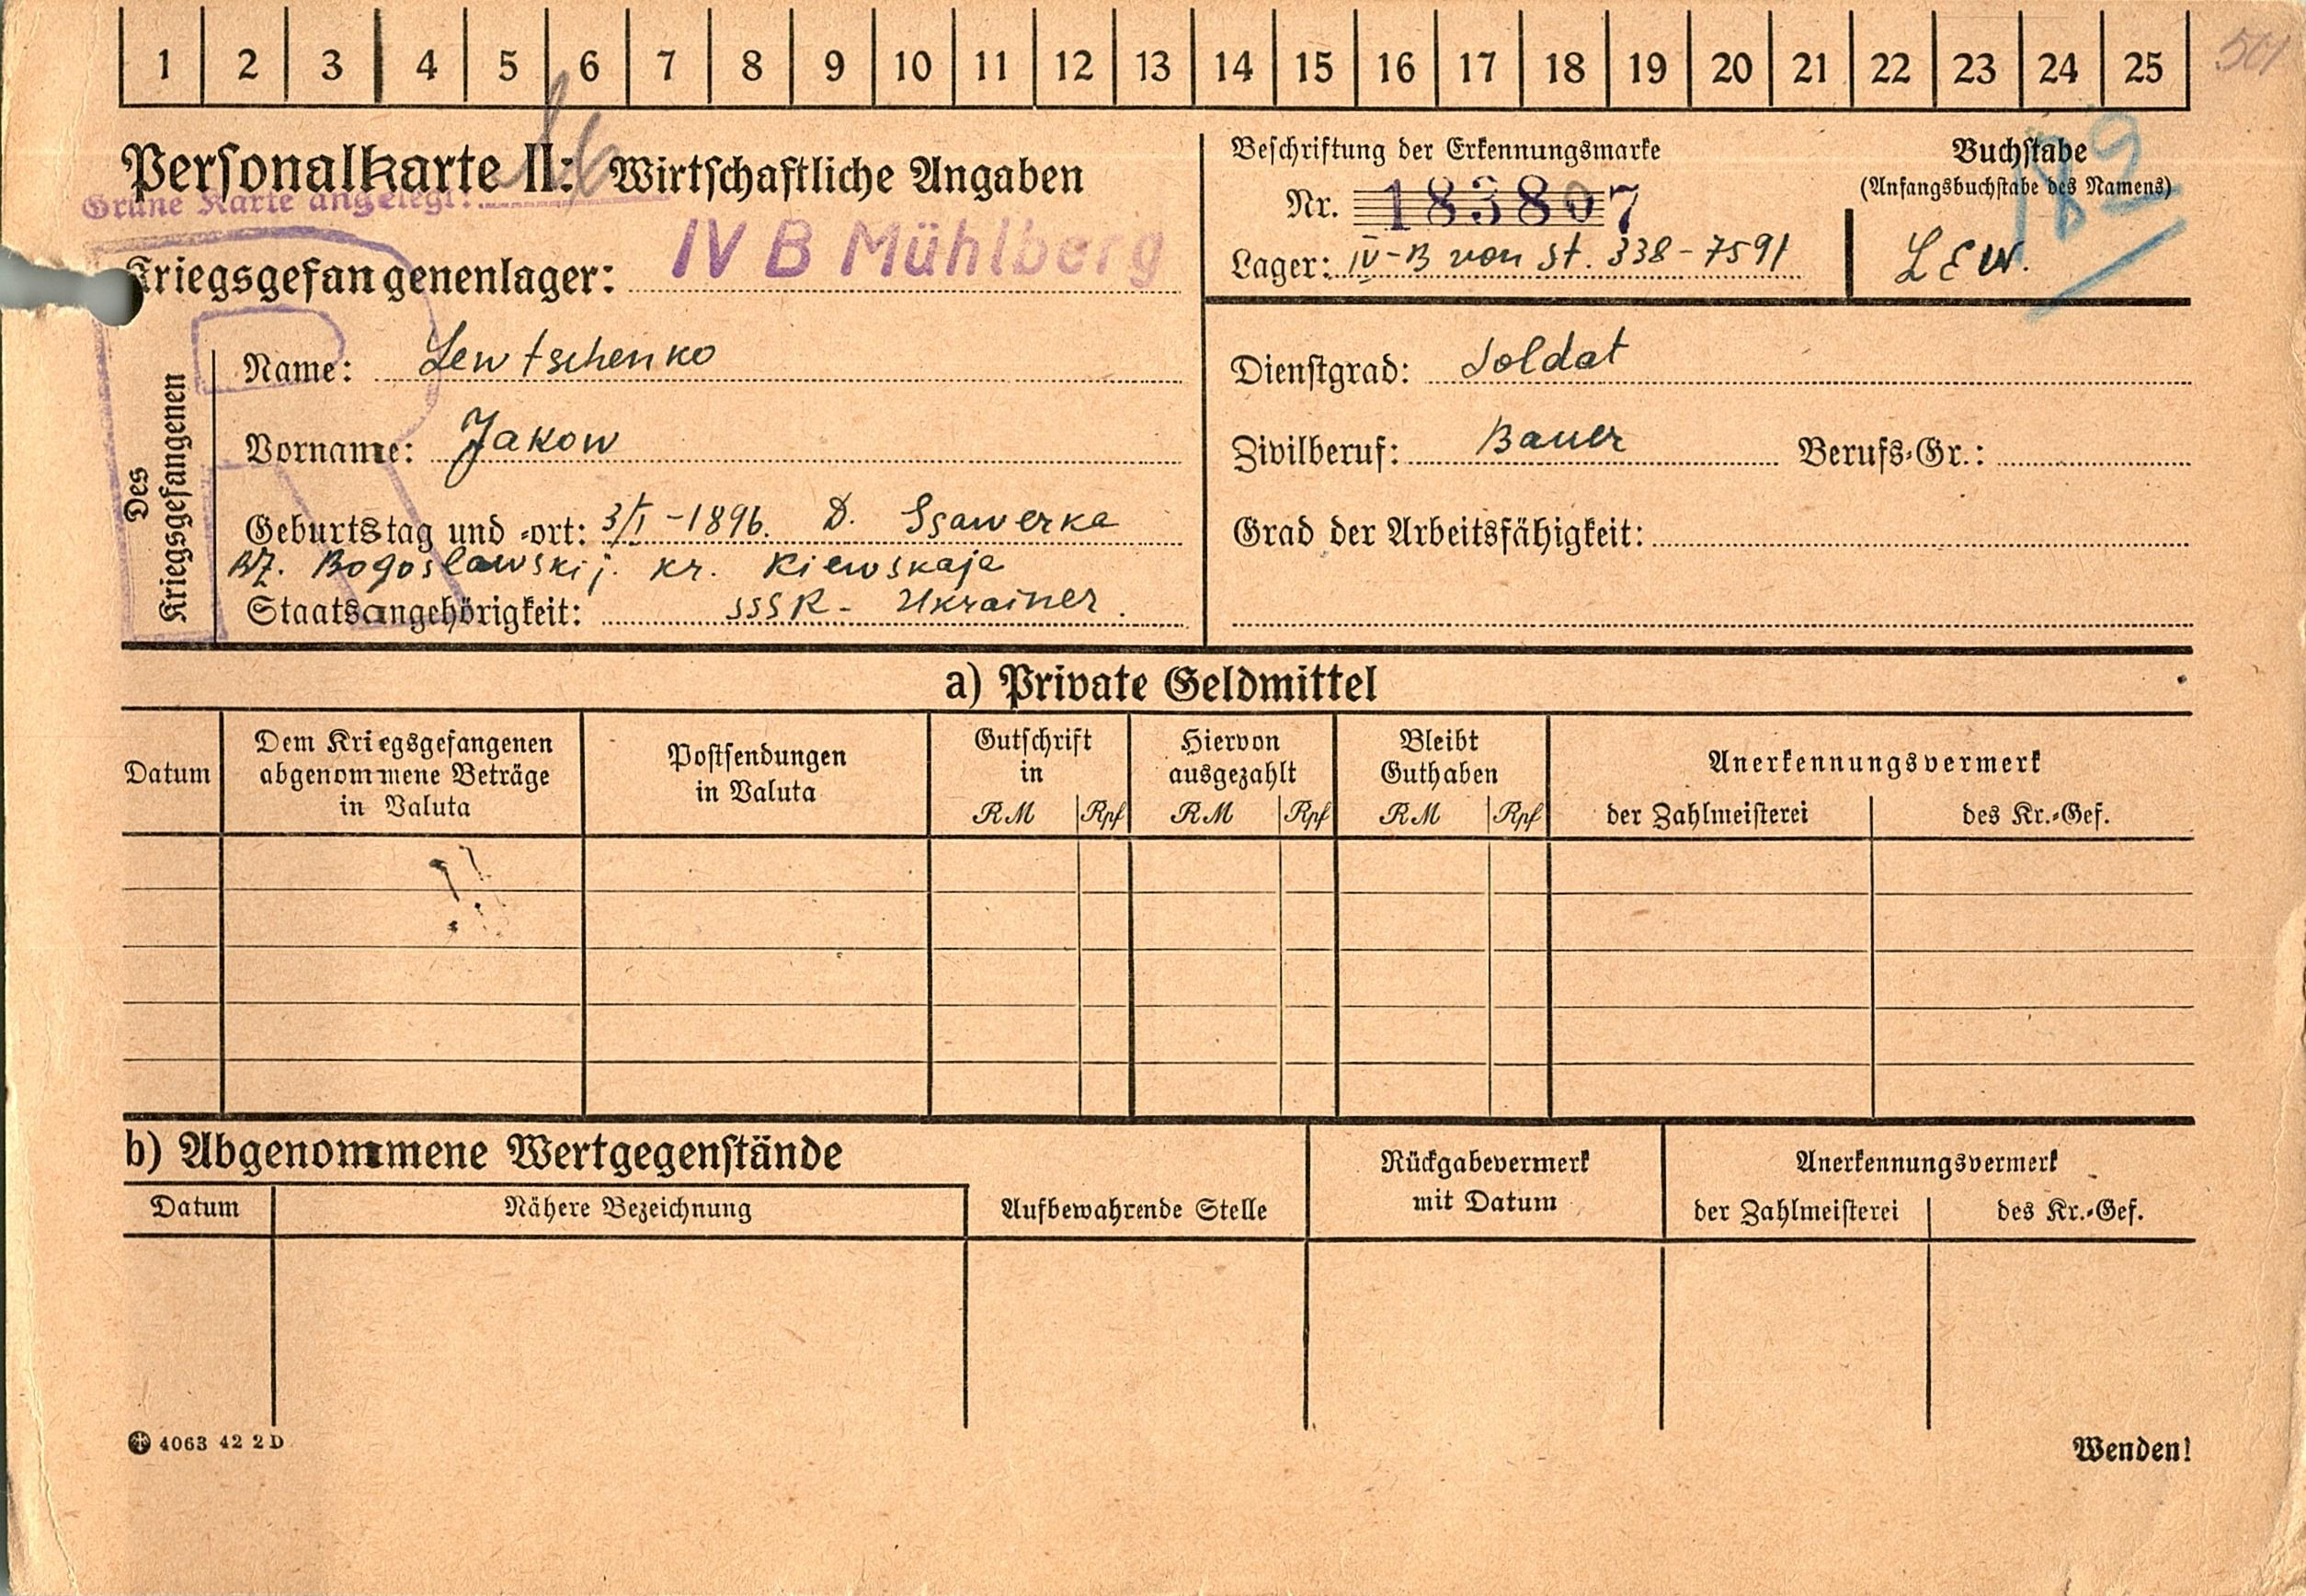 1 2 3 4 5 6 7 8 9 10 11 12 13 14 15 16 17 18 19 20 21 22 23 24 25
501
Personalkarte II: Wirtschaftliche Angaben
Grüne Karte angelegt:
Kriegsgefangenenlager: IV B Mühlberg
Beschriftung der Erkennungsmarke
Nr. 183807
Lager: IV-B von St. 338-7591
Buchstabe
(Anfangsbuchstabe des Namens)
LEW.
189
Des Kriegsgefangenen
Name: Lewtschenko
Vorname: Jakow
Geburtstag und -ort: 3/I-1896. D. Ssawerka
BZ. Bogoslawskij. Kr. Kiewskaja
Staatsangehörigkeit: SSSR- Ukrainer.
Dienstgrad: Soldat
Zivilberuf: Bauer Berufs-Gr.:
Grad der Arbeitsfähigkeit:
a) Private Geldmittel
Datum
Dem Kriegsgefangenen
abgenommene Beträge
in Valuta
Postsendungen
in Valuta
Gutschrift
in
RM Rpf
Hiervon
ausgezahlt
RM Rpf
Bleibt
Guthaben
RM Rpf
Anerkennungsvermerk
der Zahlmeisterei des Kr.-Gef.
b) Abgenommene Wertgegenstände
Datum Nähere Bezeichnung
Aufbewahrende Stelle
Rückgabevermerk
mit Datum
Anerkennungsvermerk
der Zahlmeisterei des Kr.-Gef.
4063 42 2 D
Wenden!